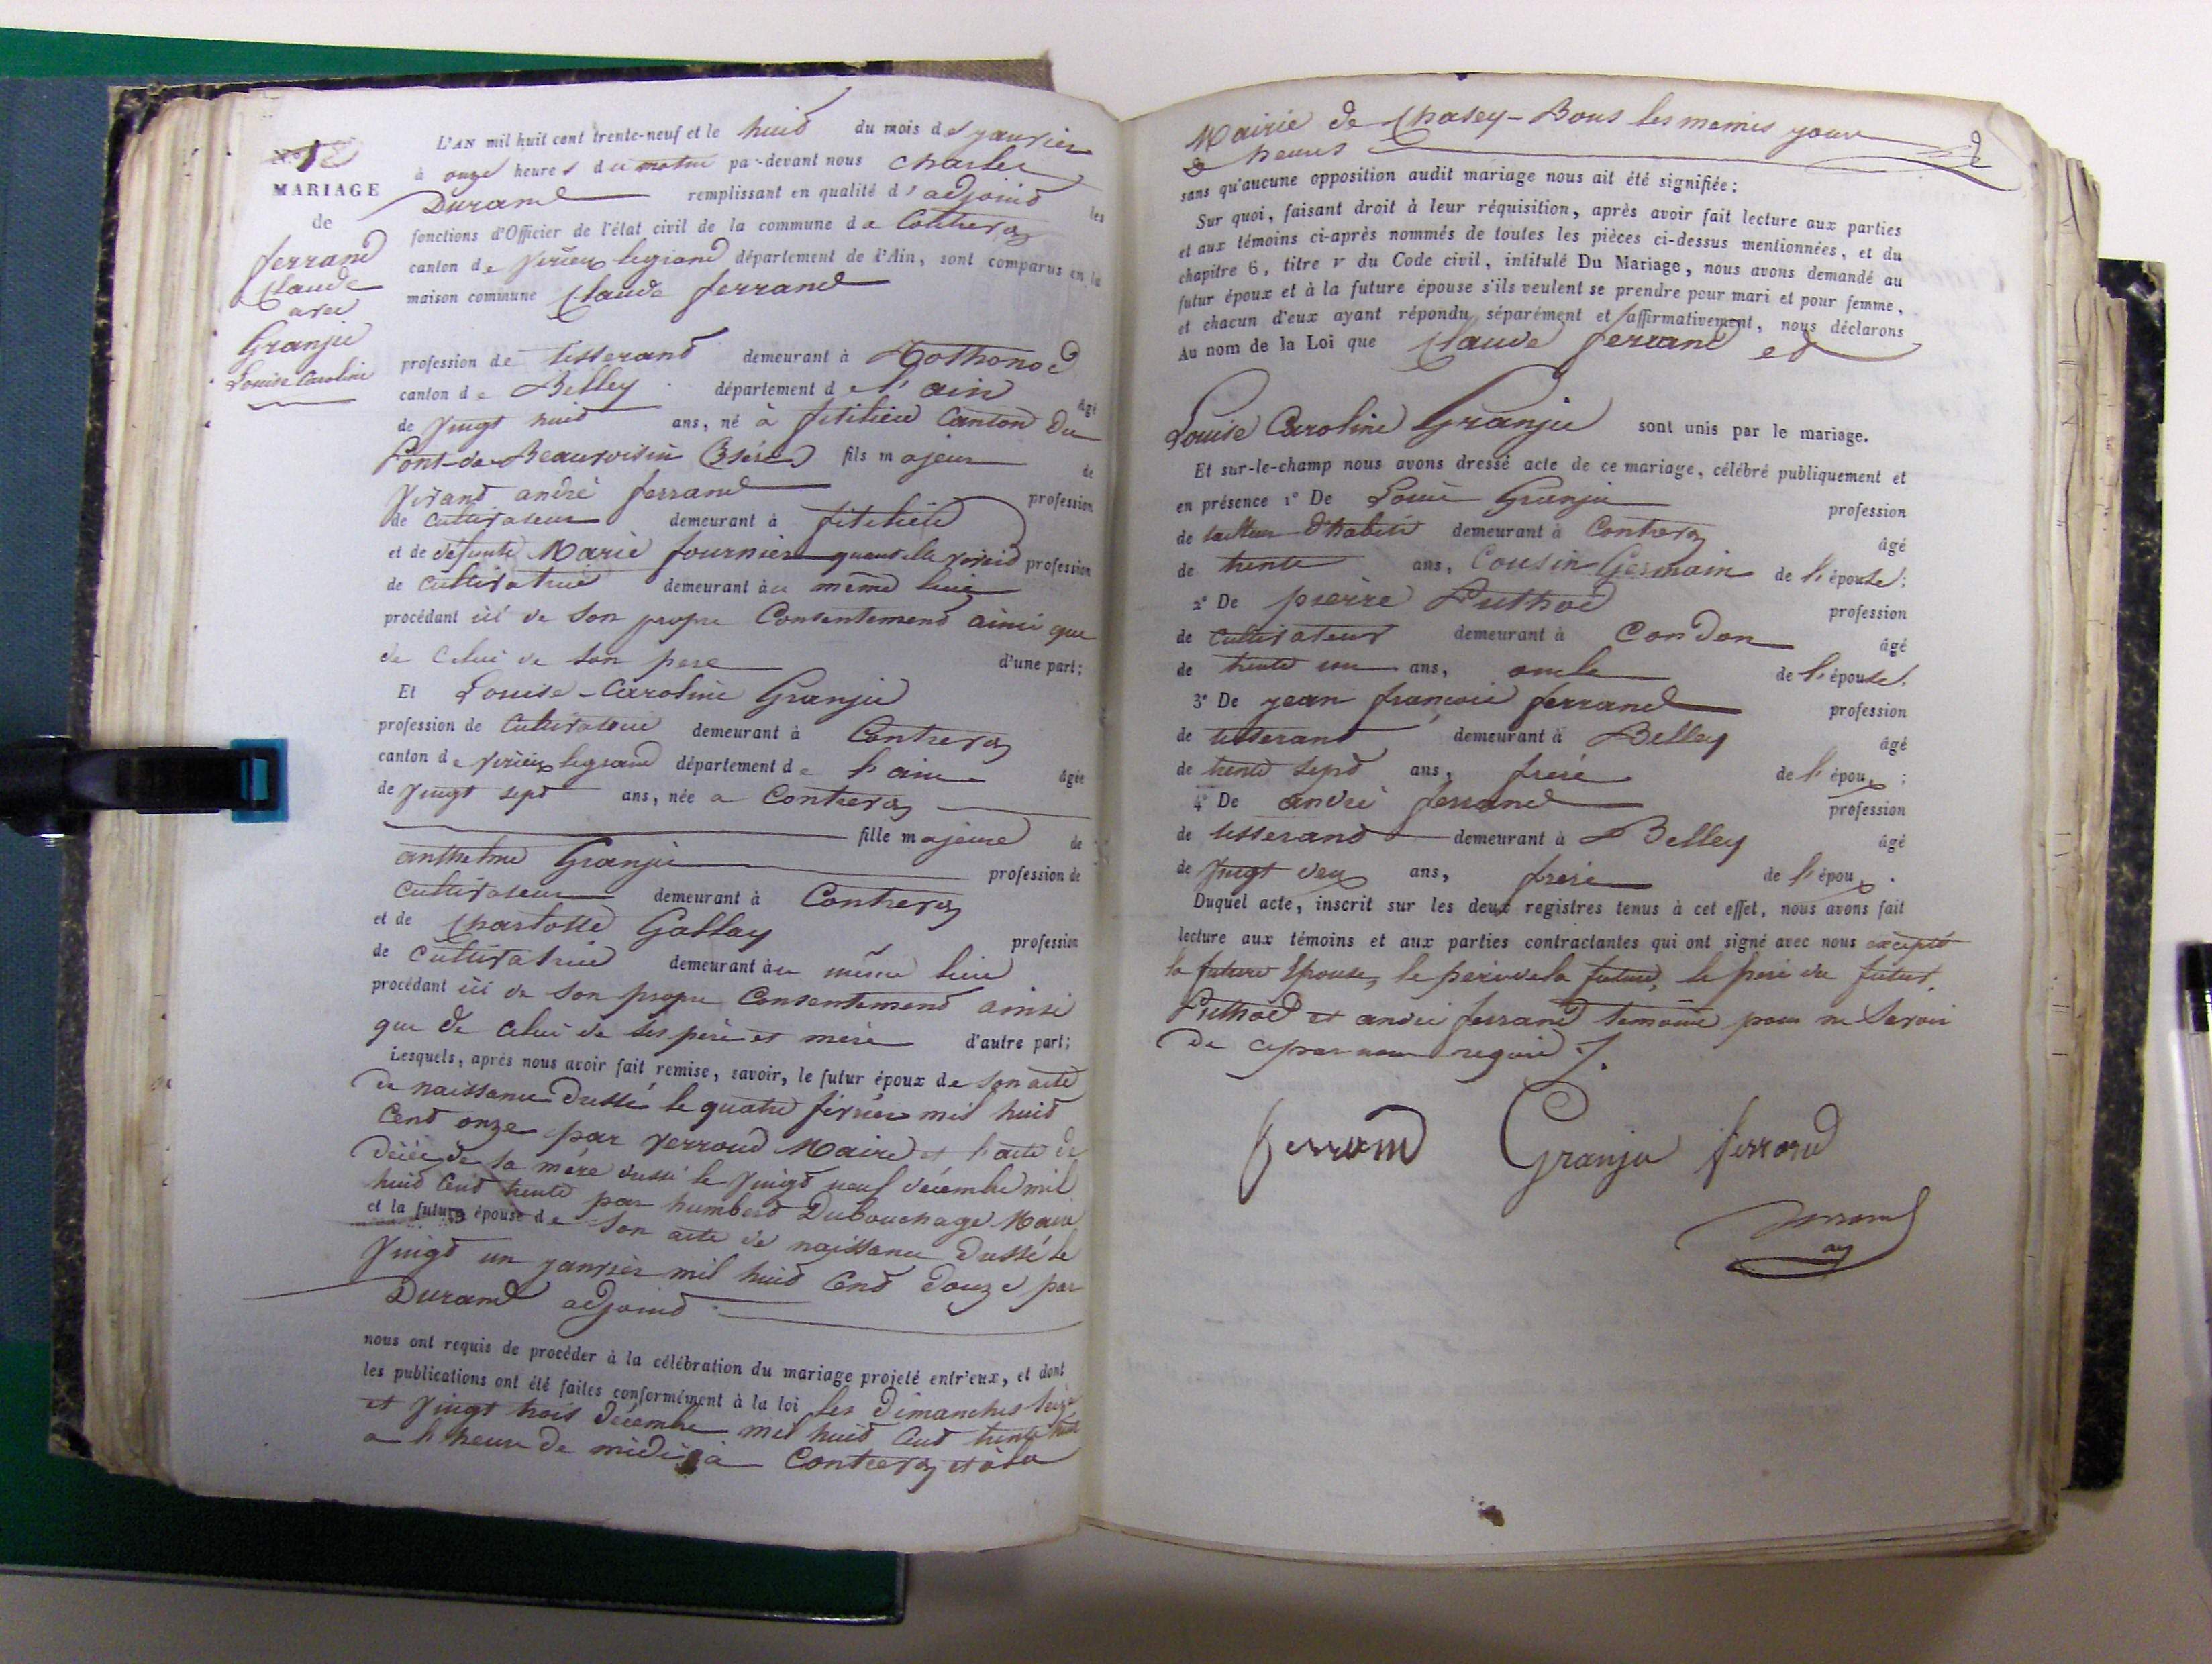 N° 1
MARIAGE
de
ferrand
Claude
avec
Granju
Louise Caroline
L'AN mil huit cent trente-neuf et le huid du mois de janvier
à onze heures du matin par-devant nous Charles
Durand remplissant en qualité d'adjoind les
fonctions d'Officier de l'état civil de la commune de Contrevoz
canton de Virieu legrand département de l'Ain, sont comparus en la
maison commune Claude ferrand
profession de tisserand demeurant à Rothonod
canton de Belley département de l'ain âgé
de vingt huid ans, né à fitilieu Canton du
Pont-de-Beauvoisin (Isère) fils majeur de
Virand andré ferrand profession
de cultivateur demeurant à fitilieu
et de défunte Marie fournier quand elle vivoid profession
de cultivatrice demeurant au même lieu
procédant ici de son propre Consentemend ainsi que
de celui de son pere d'une part;
Et Louise-Caroline Granju
profession de Cultivatrice demeurant à Contrevoz
canton de Virieu legrand département de l'ain âgée
de vingt sept ans, née a Contrevoz
fille majeure de
anthelme Granju profession de
Cultivateur demeurant à Contrevoz
et de Charlotte Gallay profession
de Cultivatrice demeurant au même lieu
procédant ici de son propre Consentemend ainsi
que de celui de ses père et mère d'autre part;
Lesquels, après nous avoir fait remise, savoir, le futur époux de son acte
de naissance dressé le quatre février mil huid
Cend onze par Verroud Maire et l'acte de
décée de sa mére dressé le vingt neuf décembre mil
huid Cend trente par humberd Dubouchage Maire
et la future épouse de son acte de naissance dressé le
vingt un janvier mil huid Cend douze par
Durand adjoind
nous ont requis de procéder à la célébration du mariage projeté entr'eux, et dont
les publications ont été faites conformément à la loi les dimanches seize
et vingt trois décembre mil huid Cend trente huit
a l'heure de midi à Contrevoz et à la
Mairie de Chasey-Bons les memes jours
& heures
sans qu'aucune opposition audit mariage nous ait été signifiée;
Sur quoi, faisant droit à leur réquisition, après avoir fait lecture aux parties
et aux témoins ci-après nommés de toutes les pièces ci-dessus mentionnées, et du
chapitre 6, titre v du Code civil, intitulé Du Mariage, nous avons demandé au
futur époux et à la future épouse s'ils veulent se prendre pour mari et pour femme,
et chacun d'eux ayant répondu séparément et affirmativement, nous déclarons
Au nom de la Loi que Claude ferrand et
Louise Caroline Granju sont unis par le mariage.
Et sur-le-champ nous avons dressé acte de ce mariage, célébré publiquement et
en présence 1° De Louis Granju profession
de tailleur d'habits demeurant à Contrevoz âgé
de trente ans, Cousin Germain de l'épouse;
2° De pierre Puthod profession
de cultivateur demeurant à Condon âgé
de trente un ans, oncle de l'épouse;
3° De jean francois ferrand profession
de tisserand demeurant à Belley âgé
de trente sept ans, frère de l'époux;
4° De andré ferrand profession
de tisserand demeurant à Belley âgé
de vingt deux ans, frere de l'époux.
Duquel acte, inscrit sur les deux registres tenus à cet effet, nous avons fait
lecture aux témoins et aux parties contractantes qui ont signé avec nous excepté
la future Epouse, le père de la future, le père du futur,
Puthod et andré ferrand temoins pour ne savoir
de ce par nous requis ./.
ferrand Granju ferrand
Durand